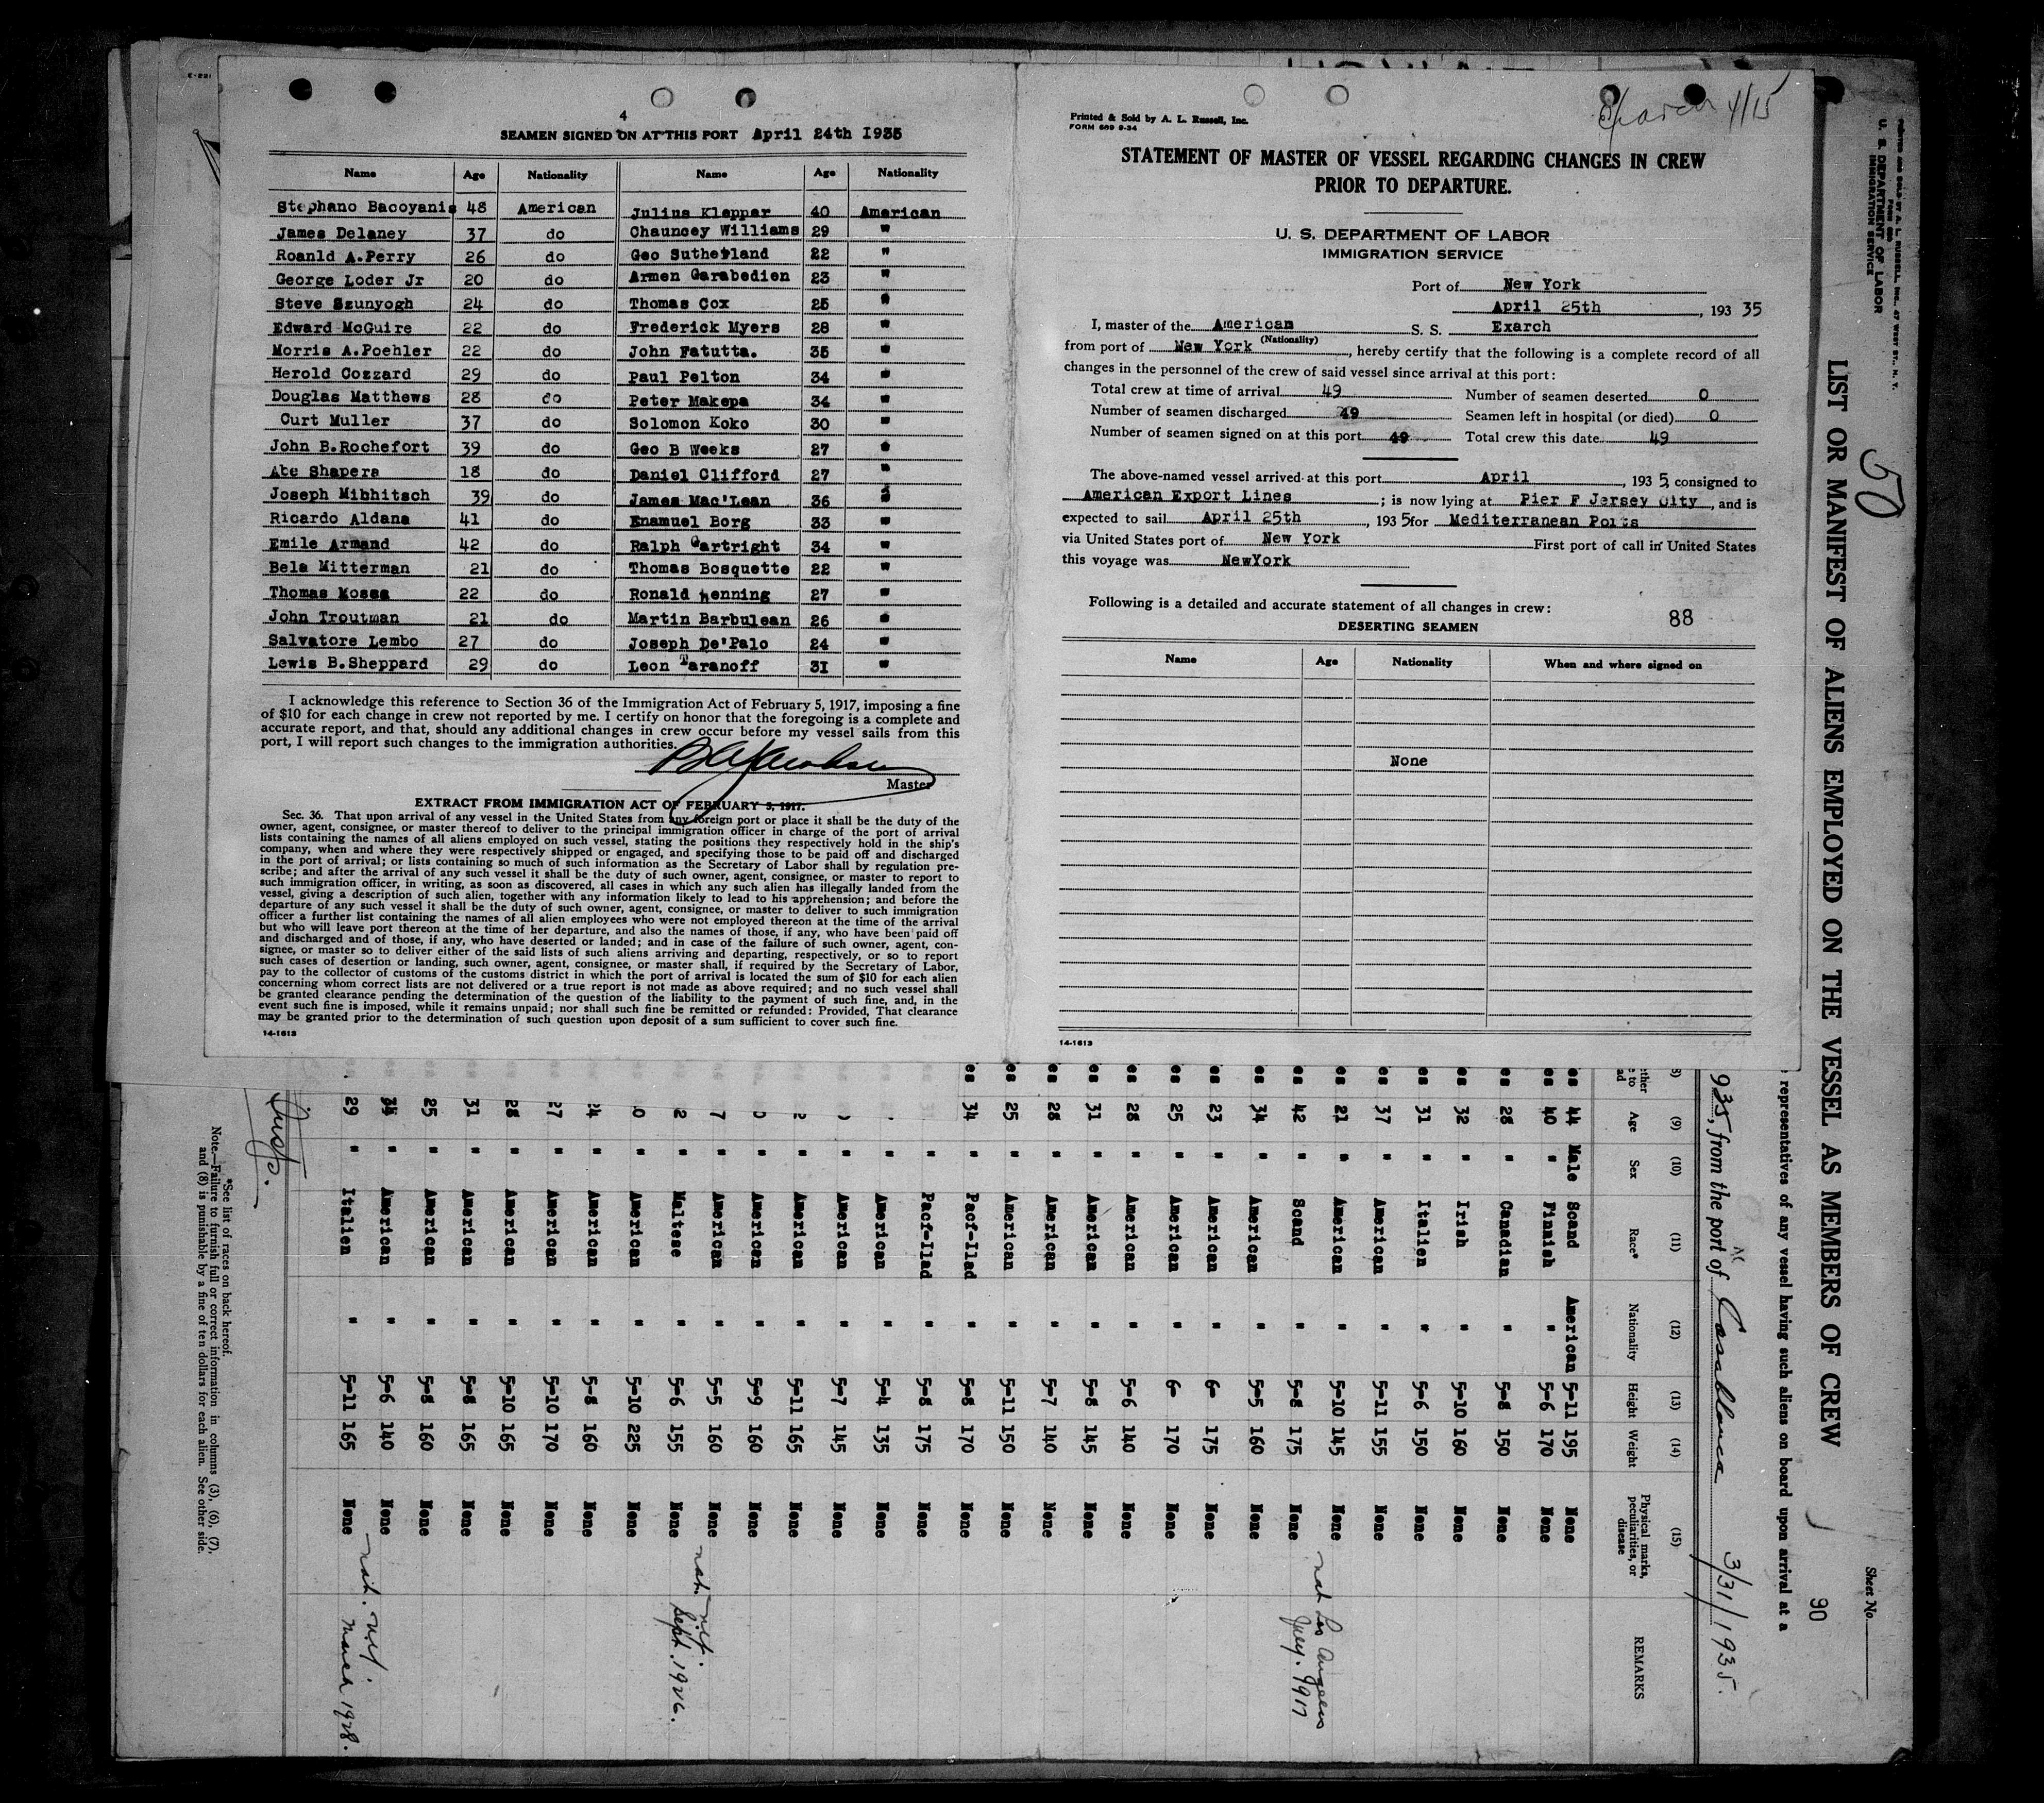 4
SEAMEN SIGNED ON AT THIS PORT April 24th 1935
Name Age Nationality Name Age Nationality
Stephano Bacoyanis 48 American Julius Klepper 40 American
James Delaney 37 do Chauncey Williams 29 "
Roanld A.Perry 26 do Geo Sutherland 22 "
George Loder Jr 20 do Armen Garabedien 23 "
Steve Szunyogh 24 do Thomas Cox 25 "
Edward McGuire 22 do Frederick Myers 28 "
Morris A.Poehler 22 do John Fatutta. 35 "
Herold Cozzard 29 do Paul Pelton 34 "
Douglas Matthews 28 do Peter Makepa 34 "
Curt Muller 37 do Solomon Koko 30 "
John B.Rochefort 39 do Geo B Weeks 27 "
Abe Shapera 18 do Daniel Clifford 27 "
Joseph Mibhitsch 39 do James Mac'Lean 36 "
Ricardo Aldana 41 do Enamuel Borg 33 "
Emile Armand 42 do Ralph Cartright 34 "
Bela Mitterman 21 do Thomas Bosquette 22 "
Thomas Mosea 22 do Ronald Henning 27 "
John Troutman 21 do Martin Barbulean 26 "
Salvatore Lembo 27 do Joseph De'Palo 24 "
Lewis B.Sheppard 29 do Leon Taranoff 31 "
I acknowledge this reference to Section 36 of the Immigration Act of February 5, 1917, imposing a fine
of $10 for each change in crew not reported by me. I certify on honor that the foregoing is a complete and
accurate report, and that, should any additional changes in crew occur before my vessel sails from this
port, I will report such changes to the immigration authorities.
Master
EXTRACT FROM IMMIGRATION ACT OF FEBRUARY 5, 1917.
Sec. 36. That upon arrival of any vessel in the United States from any foreign port or place it shall be the duty of the
owner, agent, consignee, or master thereof to deliver to the principal immigration officer in charge of the port of arrival
lists containing the names of all aliens employed on such vessel, stating the positions they respectively hold in the ship's
company, when and where they were respectively shipped or engaged, and specifying those to be paid off and discharged
in the port of arrival; or lists containing so much of such information as the Secretary of Labor shall by regulation pre-
scribe; and after the arrival of any such vessel it shall be the duty of such owner, agent, consignee, or master to report to
such immigration officer, in writing, as soon as discovered, all cases in which any such alien has illegally landed from the
vessel, giving a description of such alien, together with any information likely to lead to his apprehension; and before the
departure of any such vessel it shall be the duty of such owner, agent, consignee, or master to deliver to such immigration
officer a further list containing the names of all alien employees who were not employed thereon at the time of the arrival
but who will leave port thereon at the time of her departure, and also the names of those, if any, who have been paid off
and discharged and of those, if any, who have deserted or landed; and in case of the failure of such owner, agent, con-
signee, or master so to deliver either of the said lists of such aliens arriving and departing, respectively, or so to report
such cases of desertion or landing, such owner, agent, consignee, or master shall, if required by the Secretary of Labor,
pay to the collector of customs of the customs district in which the port of arrival is located the sum of $10 for each alien
concerning whom correct lists are not delivered or a true report is not made as above required; and no such vessel shall
be granted clearance pending the determination of the question of the liability to the payment of such fine, and, in the
event such fine is imposed, while it remains unpaid; nor shall such fine be remitted or refunded: Provided, That clearance
may be granted prior to the determination of such question upon deposit of a sum sufficient to cover such fine.
14-1613
Printed & Sold by A. L. Russell, Inc.
FORM 689 9-34
4/15
STATEMENT OF MASTER OF VESSEL REGARDING CHANGES IN CREW
PRIOR TO DEPARTURE.
U. S. DEPARTMENT OF LABOR
IMMIGRATION SERVICE
Port of New York
April 25th, 193 35
I, master of the American S. S. Exarch
(Nationality)
from port of New York, hereby certify that the following is a complete record of all
changes in the personnel of the crew of said vessel since arrival at this port:
Total crew at time of arrival 49 Number of seamen deserted 0
Number of seamen discharged 49 Seamen left in hospital (or died) 0
Number of seamen signed on at this port 49 Total crew this date 49
The above-named vessel arrived at this port April, 193 5, consigned to
American Export Lines; is now lying at Pier F Jersey City, and is
expected to sail April 25th, 193 5 for Mediterranean Ports
via United States port of New York First port of call in United States
this voyage was NewYork
Following is a detailed and accurate statement of all changes in crew:
88
DESERTING SEAMEN
Name Age Nationality When and where signed on
None
14-1613
Sheet No.
50
90
U. S. DEPARTMENT OF LABOR
IMMIGRATION SERVICE
LIST OR MANIFEST OF ALIENS EMPLOYED ON THE VESSEL AS MEMBERS OF CREW
representatives of any vessel having such aliens on board upon arrival at a
935, from the port of Casablanca 3/31/1935.
(9) (10) (11) (12) (13) (14) (15)
Age Sex Race* Nationality Height Weight Physical marks, peculiarities, or disease REMARKS
es 44 Male Scand American 5-11 195 None
es 40 " Finnish " 5-6 170 None
es 28 " Canadian " 5-8 150 None
es 32 " Irish " 5-10 160 None
es 31 " Italien " 5-6 150 None
es 37 " American " 5-11 155 None
es 21 " American " 5-10 145 None
es 42 " Scand " 5-8 175 None nat Los Angeles July. 1917
es 34 " American " 5-5 160 None
es 23 " American " 6- 175 None
es 25 " American " 6- 170 None
es 28 " American " 5-6 140 None
es 31 " American " 5-8 145 None
es 28 " American " 5-7 140 None
es 25 " American " 5-11 150 None
es 34 " Pacf-Ilad " 5-8 170 None
" Pacf-Ilad " 5-8 175 None
" American " 5-4 135 None
" American " 5-7 145 None
2 " American " 5-11 165 None
0 " American " 5-9 160 None
7 " American " 5-5 160 None
2 " Maltese " 5-6 155 None nat. N.Y. Sept. 1926.
0 " American " 5-10 225 None
24 " American " 5-8 160 None
27 " American " 5-10 170 None
28 " American " 5-10 165 None
31 " American " 5-8 165 None
25 " American " 5-8 160 None
34 " American " 5-6 140 None
29 " Italien " 5-11 165 None nat. N.Y. March 1928.
*See list of races on back hereof.
Note.—Failure to furnish full or correct information in columns (3), (6), (7),
and (8) is punishable by a fine of ten dollars for each alien. See other side.